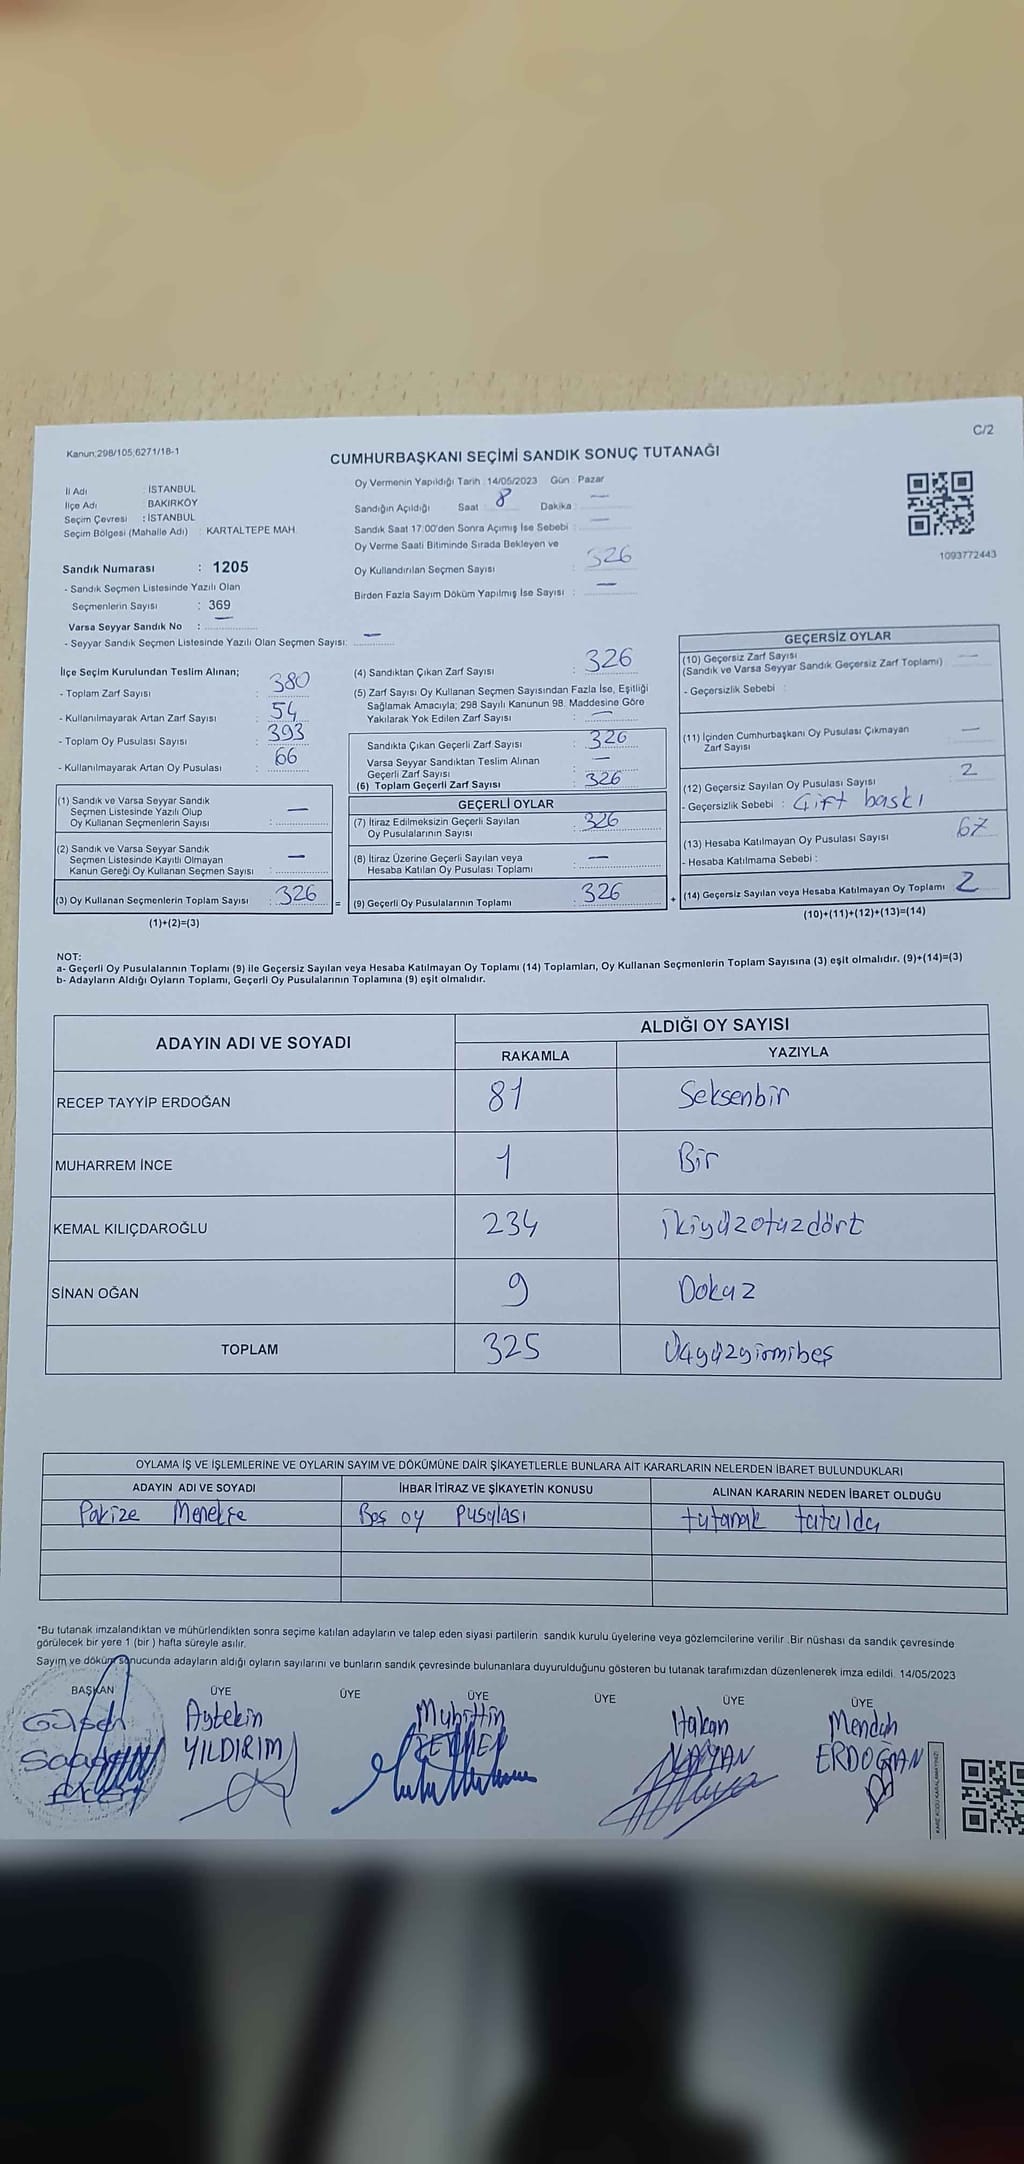 Kanun;298/105,6271/18-1
C/2
CUMHURBAŞKANI SEÇİMİ SANDIK SONUÇ TUTANAĞI
İl Adı : İSTANBUL
İlçe Adı : BAKIRKÖY
Seçim Çevresi : İSTANBUL
Seçim Bölgesi (Mahalle Adı) : KARTALTEPE MAH.
Sandık Numarası : 1205
- Sandık Seçmen Listesinde Yazılı Olan
Seçmenlerin Sayısı : 369
Varsa Seyyar Sandık No : —
- Seyyar Sandık Seçmen Listesinde Yazılı Olan Seçmen Sayısı: —
Oy Vermenin Yapıldığı Tarih : 14/05/2023 Gün : Pazar
Sandığın Açıldığı Saat : 8 Dakika : —
Sandık Saat 17:00'den Sonra Açımış İse Sebebi : —
Oy Verme Saati Bitiminde Sırada Bekleyen ve
Oy Kullandırılan Seçmen Sayısı : 326
Birden Fazla Sayım Döküm Yapılmış İse Sayısı : —
1093772443
İlçe Seçim Kurulundan Teslim Alınan;
- Toplam Zarf Sayısı : 380
- Kullanılmayarak Artan Zarf Sayısı : 54
- Toplam Oy Pusulası Sayısı : 393
- Kullanılmayarak Artan Oy Pusulası : 66
(1) Sandık ve Varsa Seyyar Sandık
Seçmen Listesinde Yazılı Olup
Oy Kullanan Seçmenlerin Sayısı : —
(2) Sandık ve Varsa Seyyar Sandık
Seçmen Listesinde Kayıtlı Olmayan
Kanun Gereği Oy Kullanan Seçmen Sayısı : —
(3) Oy Kullanan Seçmenlerin Toplam Sayısı : 326
(1)+(2)=(3)
(4) Sandıktan Çıkan Zarf Sayısı : 326
(5) Zarf Sayısı Oy Kullanan Seçmen Sayısından Fazla İse, Eşitliği
Sağlamak Amacıyla; 298 Sayılı Kanunun 98. Maddesine Göre
Yakılarak Yok Edilen Zarf Sayısı : —
Sandıkta Çıkan Geçerli Zarf Sayısı : 326
Varsa Seyyar Sandıktan Teslim Alınan
Geçerli Zarf Sayısı : —
(6) Toplam Geçerli Zarf Sayısı : 326
GEÇERLİ OYLAR
(7) İtiraz Edilmeksizin Geçerli Sayılan
Oy Pusulalarının Sayısı : 326
(8) İtiraz Üzerine Geçerli Sayılan veya
Hesaba Katılan Oy Pusulası Toplamı : —
= (9) Geçerli Oy Pusulalarının Toplamı : 326 +
GEÇERSİZ OYLAR
(10) Geçersiz Zarf Sayısı
(Sandık ve Varsa Seyyar Sandık Geçersiz Zarf Toplamı) —
- Geçersizlik Sebebi :
(11) İçinden Cumhurbaşkanı Oy Pusulası Çıkmayan
Zarf Sayısı —
(12) Geçersiz Sayılan Oy Pusulası Sayısı 2
- Geçersizlik Sebebi : Çift baskı
(13) Hesaba Katılmayan Oy Pusulası Sayısı 67
- Hesaba Katılmama Sebebi :
(14) Geçersiz Sayılan veya Hesaba Katılmayan Oy Toplamı 2
(10)+(11)+(12)+(13)=(14)
NOT:
a- Geçerli Oy Pusulalarının Toplamı (9) ile Geçersiz Sayılan veya Hesaba Katılmayan Oy Toplamı (14) Toplamları, Oy Kullanan Seçmenlerin Toplam Sayısına (3) eşit olmalıdır. (9)+(14)=(3)
b- Adayların Aldığı Oyların Toplamı, Geçerli Oy Pusulalarının Toplamına (9) eşit olmalıdır.
ADAYIN ADI VE SOYADI
ALDIĞI OY SAYISI
RAKAMLA YAZIYLA
RECEP TAYYİP ERDOĞAN 81 Seksenbir
MUHARREM İNCE 1 Bir
KEMAL KILIÇDAROĞLU 234 ikiyüzotuzdört
SİNAN OĞAN 9 Dokuz
TOPLAM 325 Üçyüzyirmibeş
OYLAMA İŞ VE İŞLEMLERİNE VE OYLARIN SAYIM VE DÖKÜMÜNE DAİR ŞİKAYETLERLE BUNLARA AİT KARARLARIN NELERDEN İBARET BULUNDUKLARI
ADAYIN ADI VE SOYADI İHBAR İTİRAZ VE ŞİKAYETİN KONUSU ALINAN KARARIN NEDEN İBARET OLDUĞU
Pakize Menekşe Boş oy pusulası tutanak tutuldu
*Bu tutanak imzalandıktan ve mühürlendikten sonra seçime katılan adayların ve talep eden siyasi partilerin sandık kurulu üyelerine veya gözlemcilerine verilir .Bir nüshası da sandık çevresinde
görülecek bir yere 1 (bir ) hafta süreyle asılır.
Sayım ve döküm sonucunda adayların aldığı oyların sayılarını ve bunların sandık çevresinde bulunanlara duyurulduğunu gösteren bu tutanak tarafımızdan düzenlenerek imza edildi. 14/05/2023
BAŞKAN ÜYE ÜYE ÜYE ÜYE ÜYE ÜYE
Aytekin Muhittin Hakan Menduh
YILDIRIM KAYAN ERDOĞAN